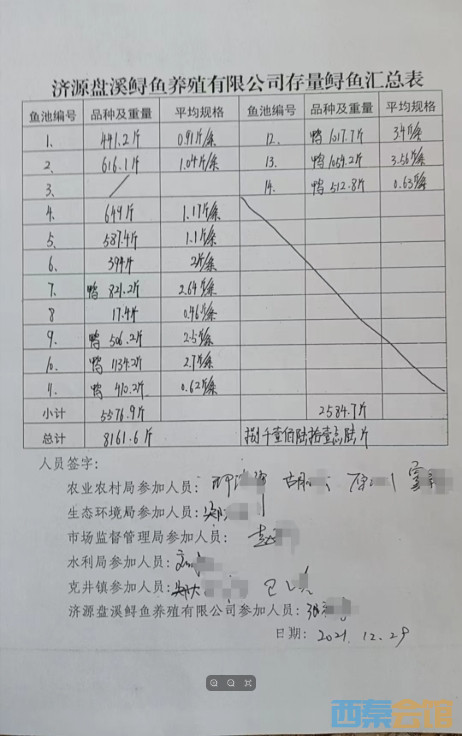 济源盘溪鲟鱼养殖有限公司存量鲟鱼汇总表
鱼池编号 品种及重量 平均规格 鱼池编号 品种及重量 平均规格
1. 441.2斤 0.91斤/条 12. 鸭 1017.7斤 3.4斤/条
2. 616.1斤 1.04斤/条 13. 鸭 1054.2斤 3.56斤/条
3. 14. 鸭 512.8斤 0.63斤/条
4. 649斤 1.17斤/条
5. 587.4斤 1.1斤/条
6. 394斤 2斤/条
7. 鸭 821.2斤 2.64斤/条
8 17.4斤 0.46斤/条
9. 鸭 506.2斤 2.5斤/条
10. 鸭 1134.2斤 2.7斤/条
11. 鸭 410.2斤 0.62斤/条
小计 5576.9斤 2584.7斤
总计 8161.6斤 捌千壹佰陆拾壹点陆斤
人员签字:
农业农村局参加人员:
生态环境局参加人员:
市场监督管理局参加人员:
水利局参加人员:
克井镇参加人员:
济源盘溪鲟鱼养殖有限公司参加人员:
日期: 2021.12.29
西秦会馆